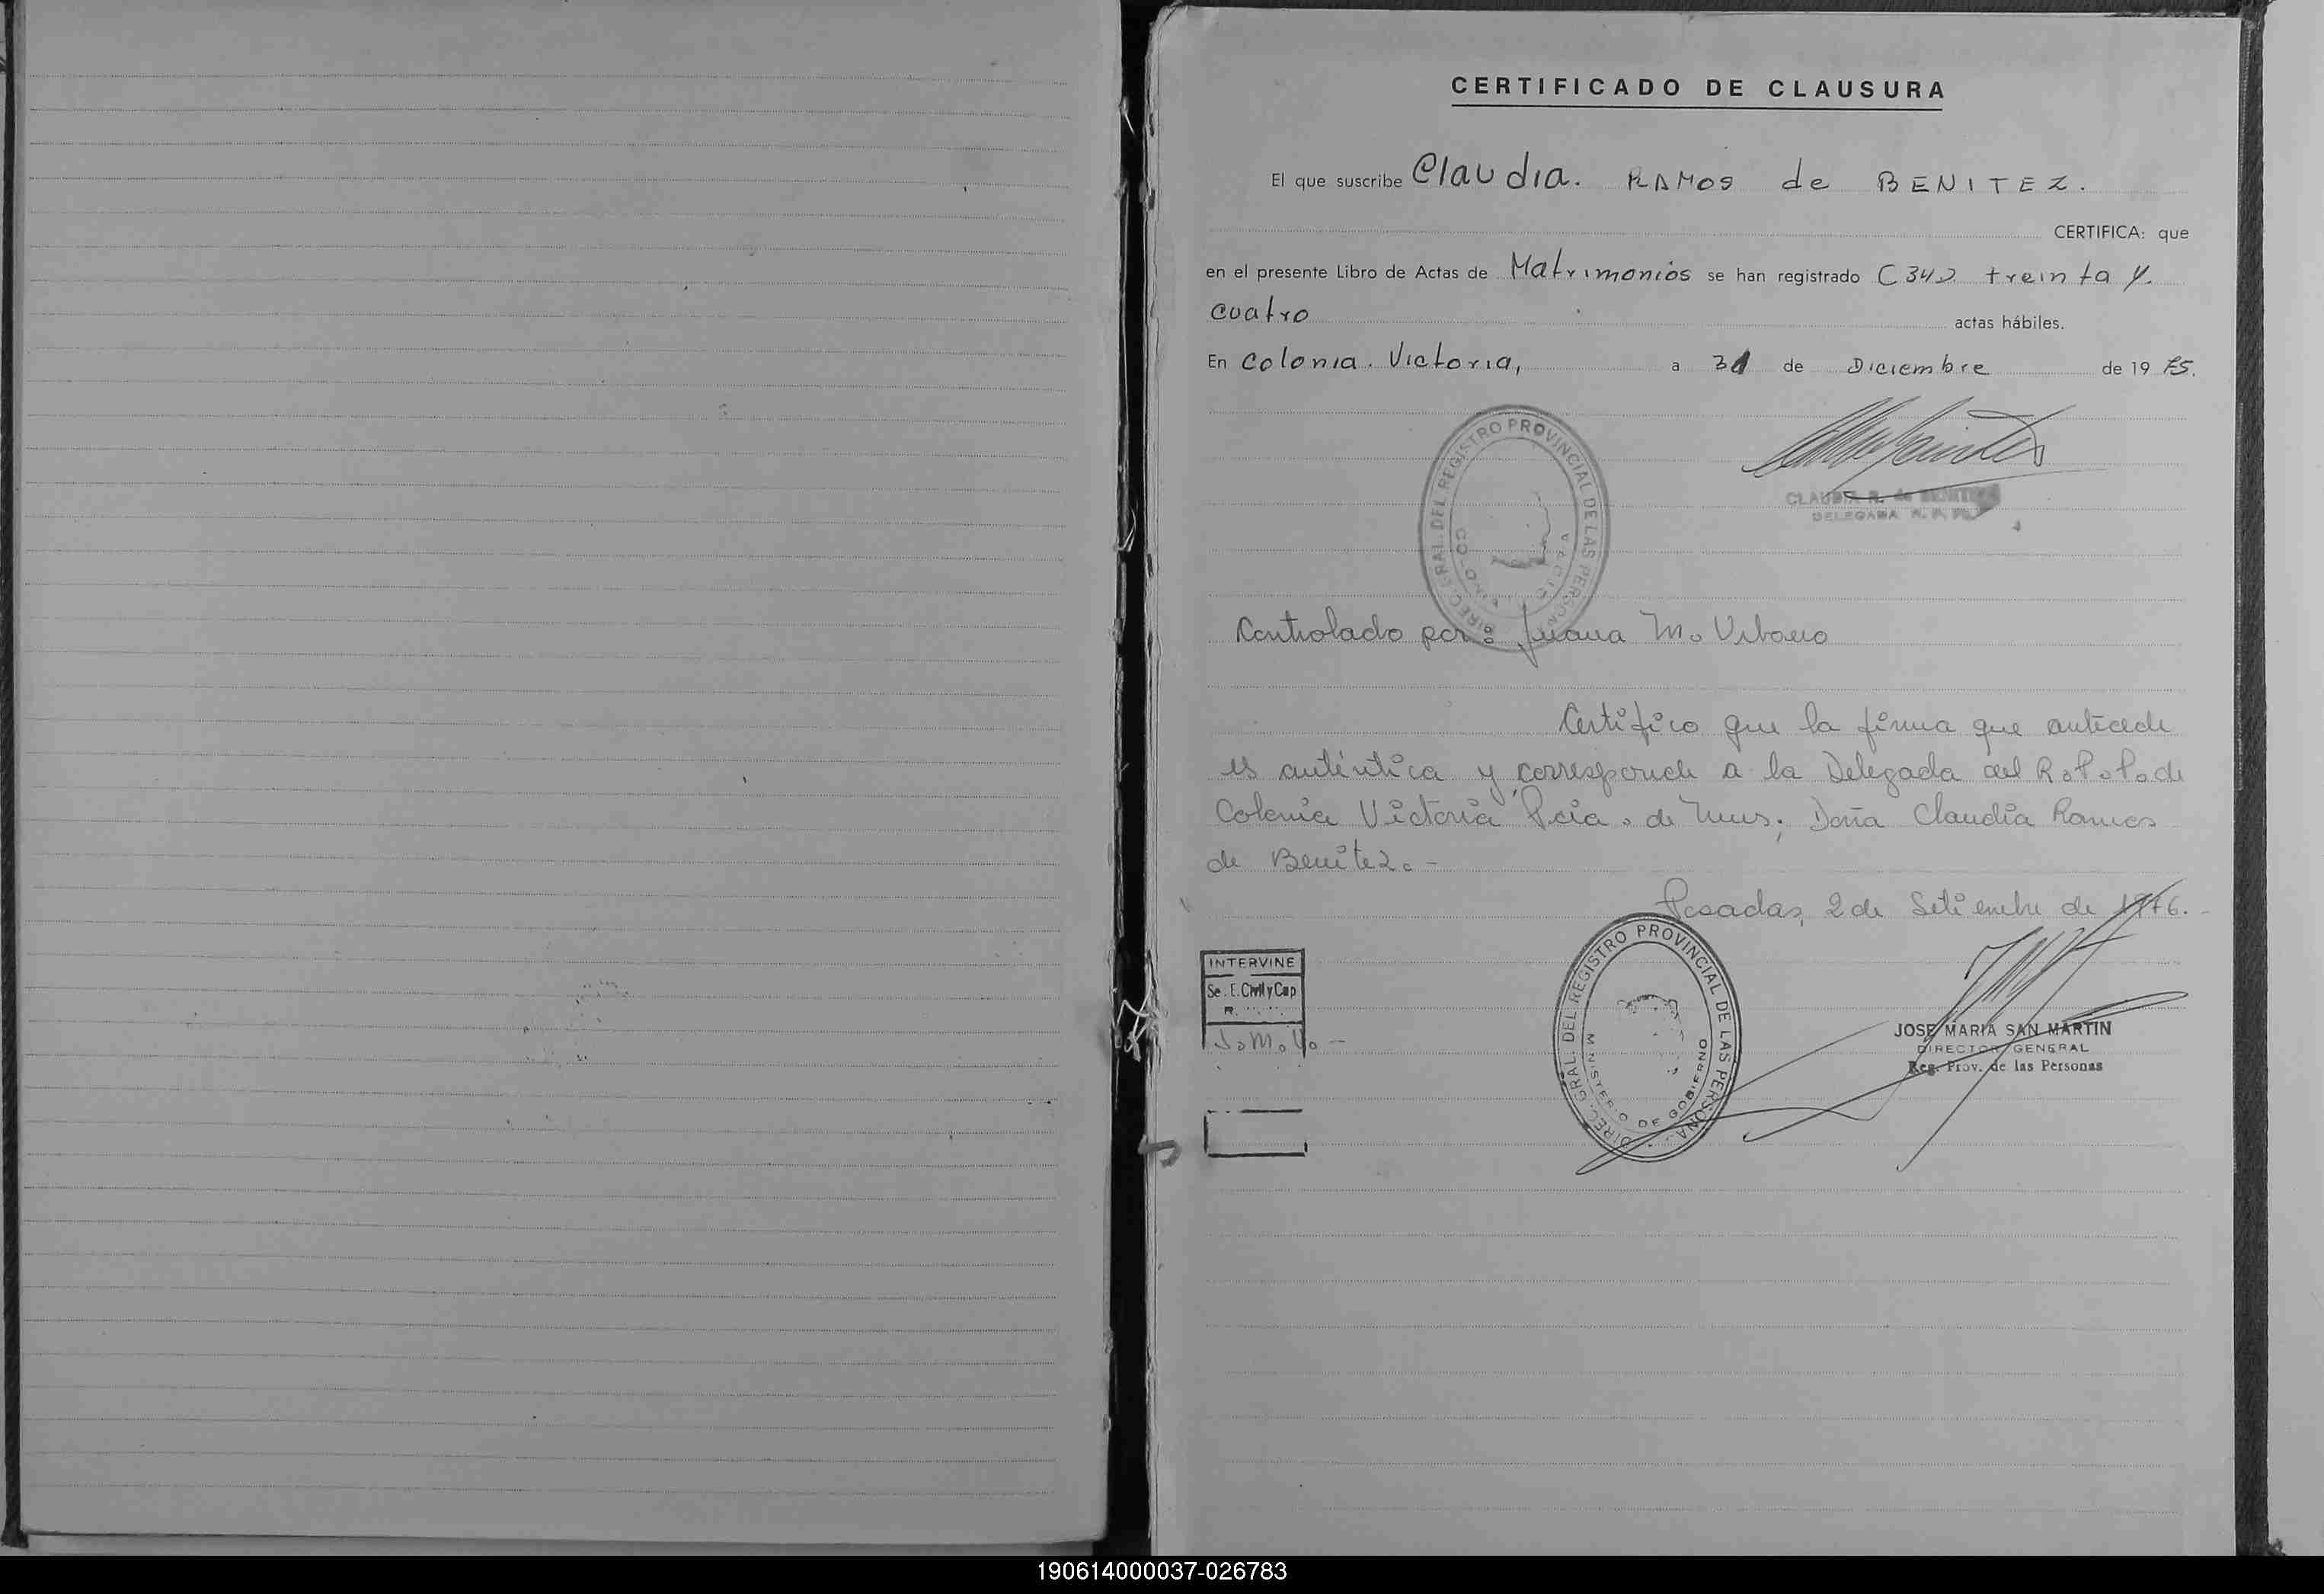 CERTIFICADO DE CLAUSURA
El que suscribe Claudia. RAMOS de BENITEZ.
CERTIFICA: que
en el presente Libro de Actas de Matrimonios se han registrado (34) treinta y
cuatro actas hábiles.
En Colonia. Victoria, a 31 de Diciembre de 1975.
DIREC. GRAL. DEL REGISTRO PROVINCIAL DE LAS PERSONAS
CLAUDIA R. de BENITEZ
DELEGADA R. P. P.
Controlado por: Juana M. Urbano
Certifico que la firma que antecede
es auténtica y corresponde a la Delegada del R.P.P. de
Colonia Victoria Pcia. de Mnes; Doña Claudia Ramos
de Benitez. -
Posadas, 2 de Setiembre de 1976. -
INTERVINE
Se. E. Civil y Cap
R.
J. M. U. -
DIREC. GRAL. DEL REGISTRO PROVINCIAL DE LAS PERSONAS
MINISTERIO DE GOBIERNO
JOSE MARIA SAN MARTIN
DIRECTOR GENERAL
Reg. Prov. de las Personas
190614000037-026783